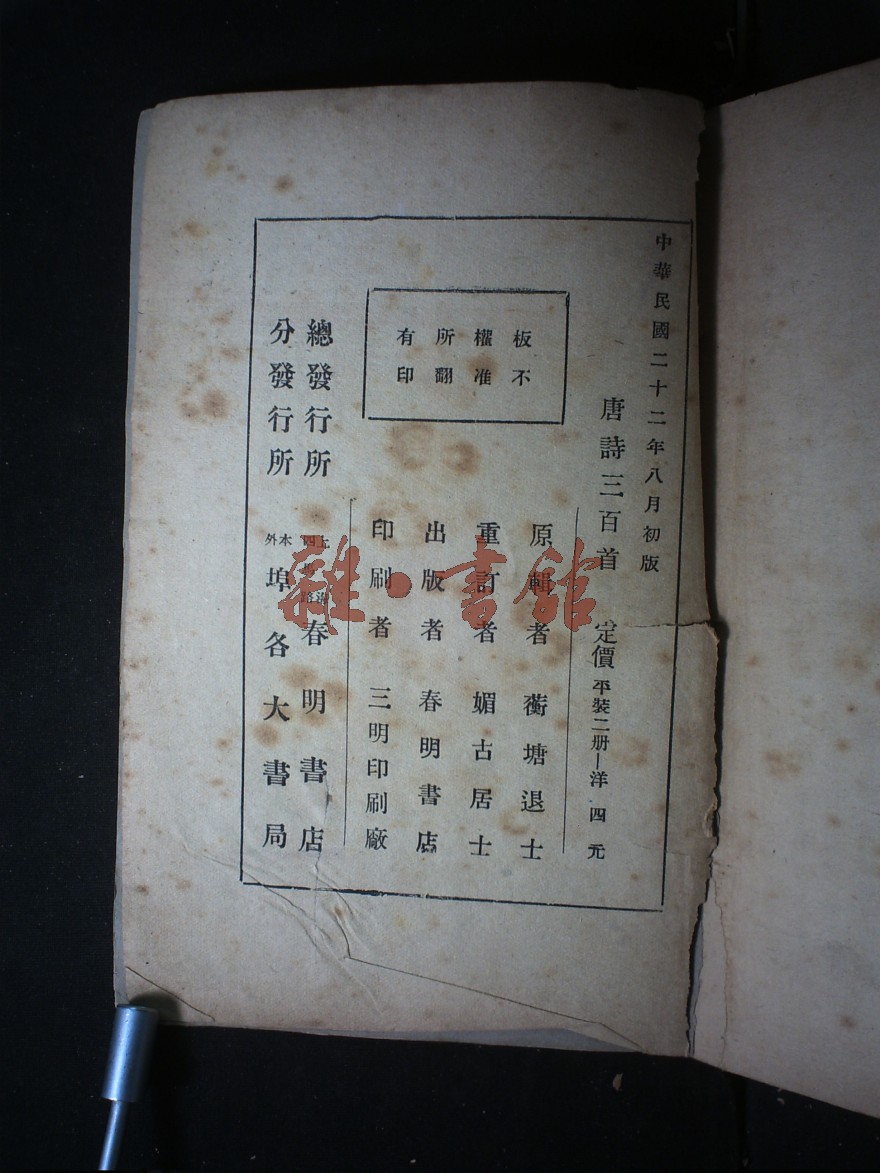 中華民國二十二年八月初版
唐詩三百首 定價平裝二册—洋四元
原輯者 蘅塘退士
重訂者 媚古居士
出版者 春明書店
印刷者 三明印刷廠
板權所有
不准翻印
總發行所 上海四馬路 春明書店
分發行所 本外埠各大書局
雜·書館